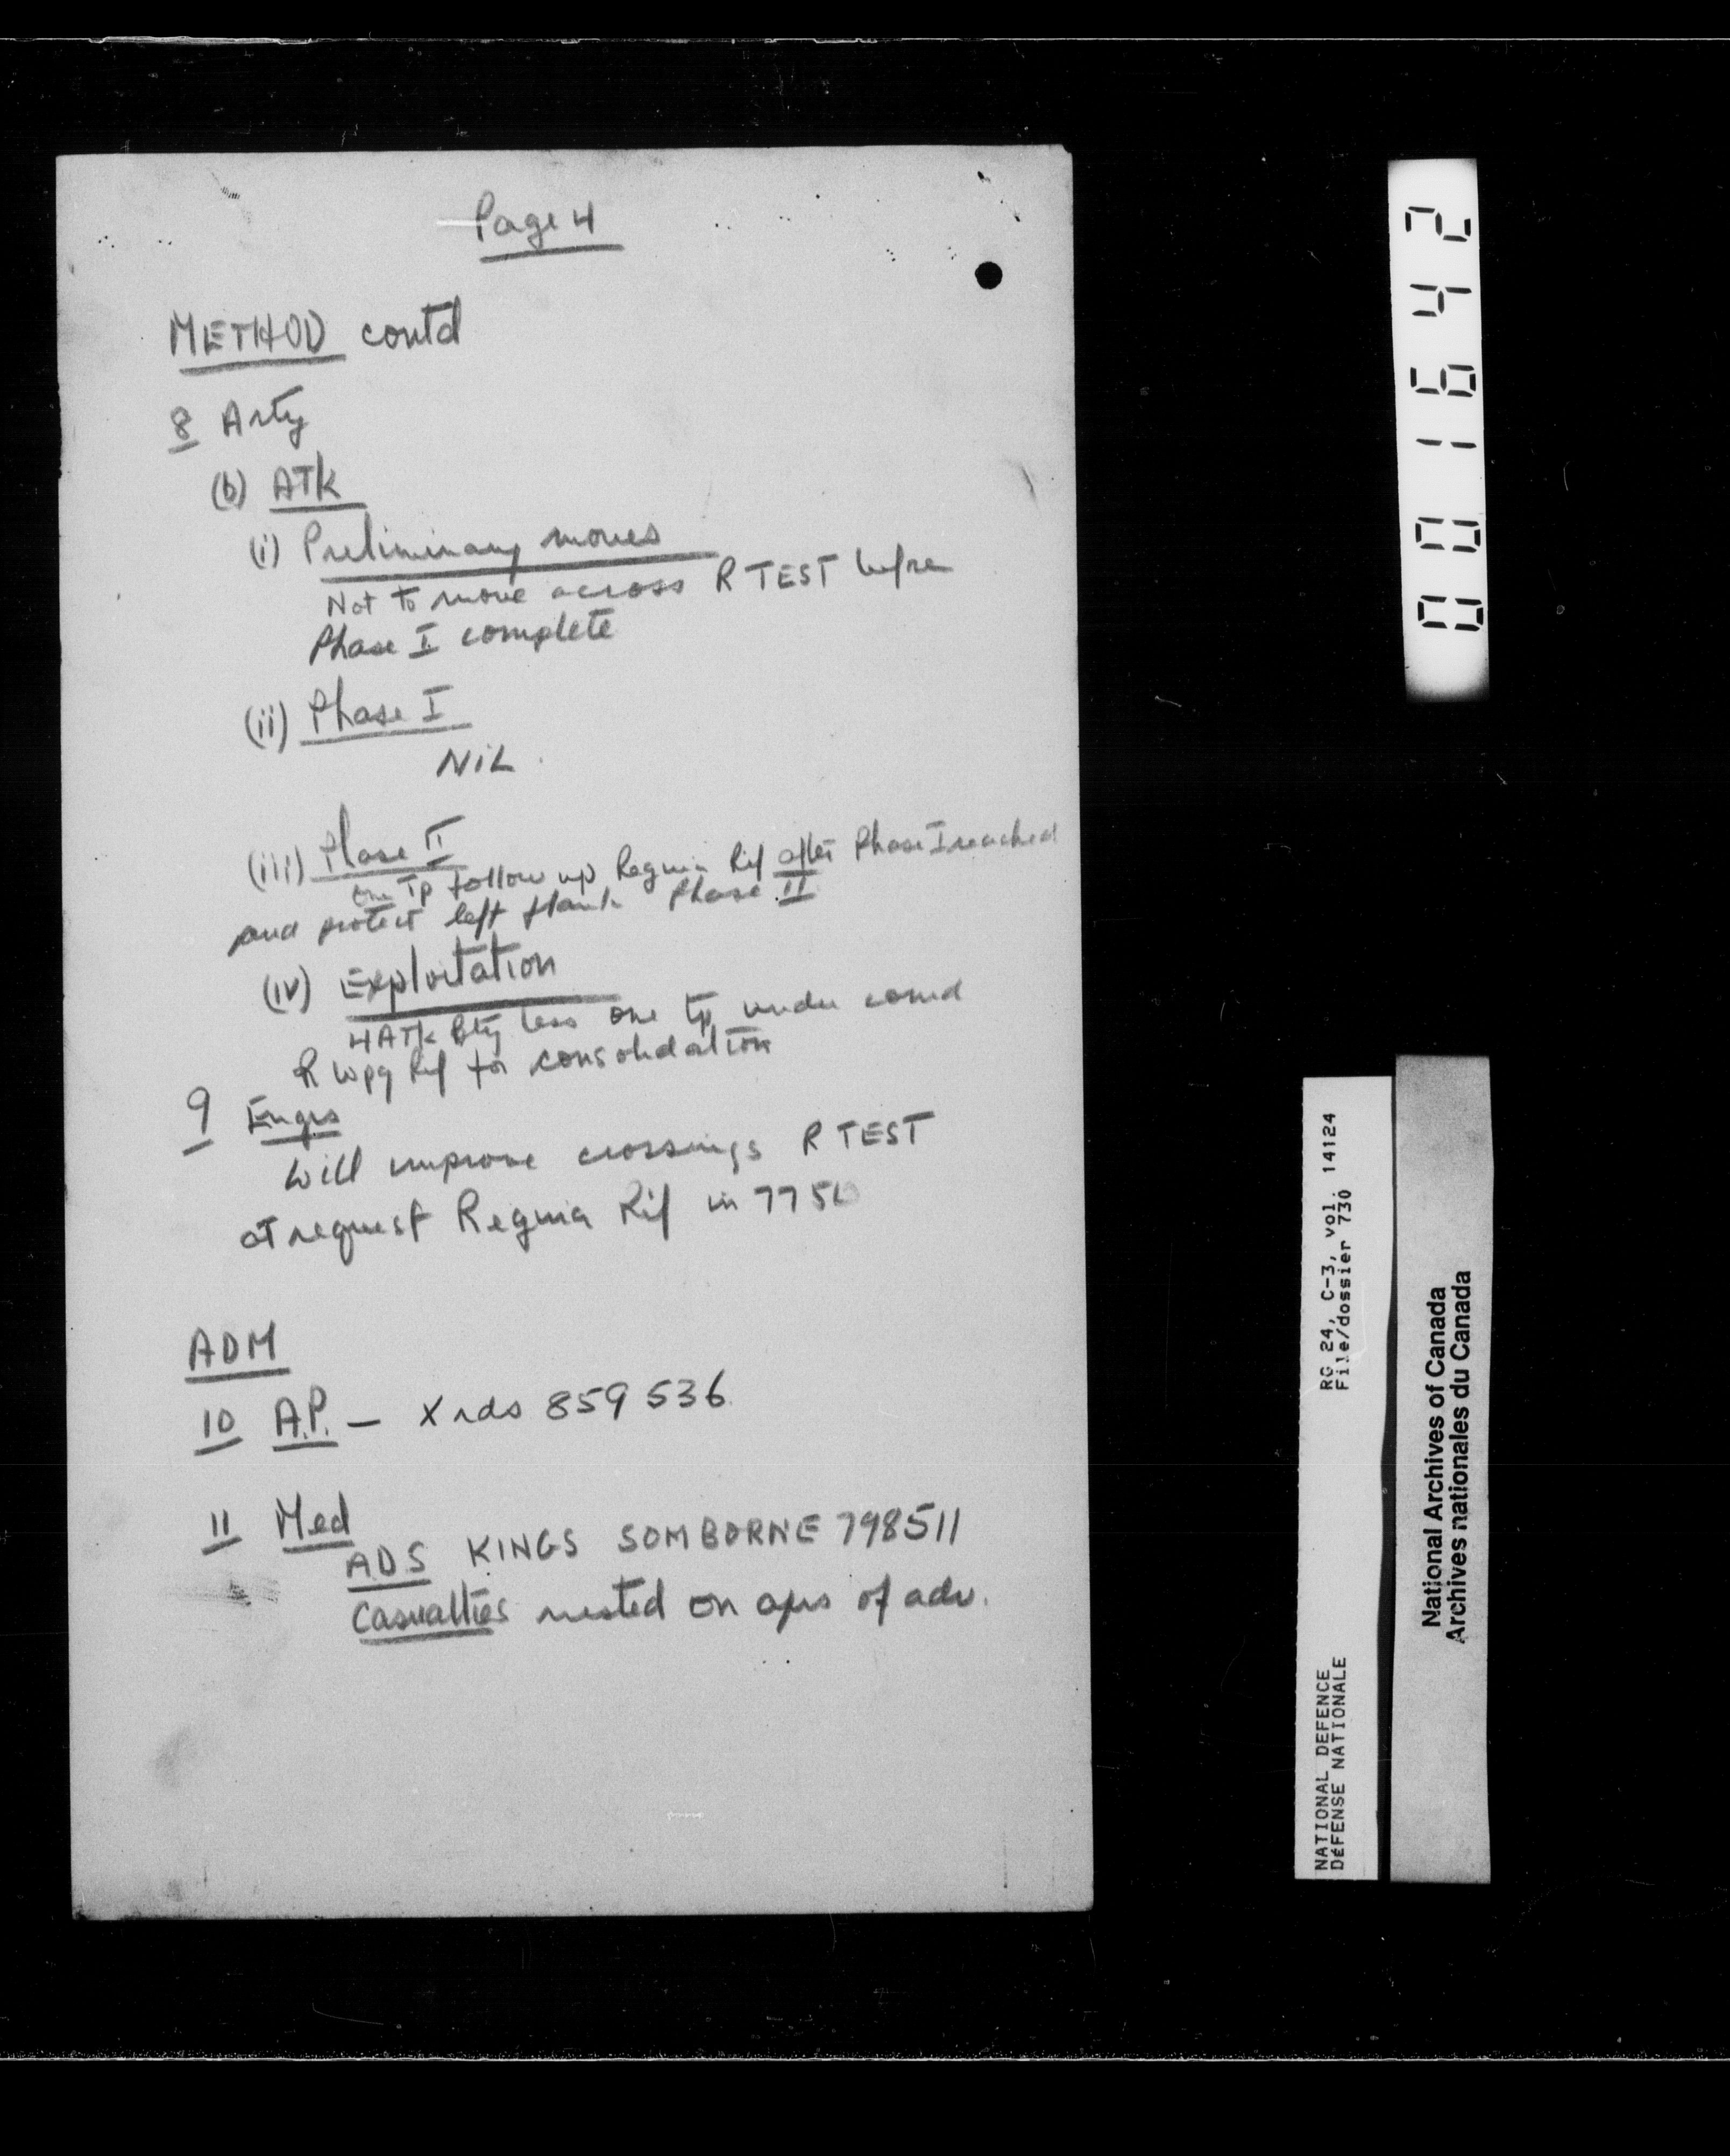 Page 4
METHOD contd
8 Arty
(b) ATK
(i) Preliminary moves
Not to move across R TEST before
Phase I complete
(ii) Phase I
NIL.
(iii) Phase II
one Tp follow up Regina Rif after Phase I reached
and protect left flank Phase II
(iv) Exploitation
4 ATk Bty less one tp under comd
R Wpg Rif for consolidation
9 Engrs
Will improve crossings R TEST
at request Regina Rif in 7750
ADM
10 A.P. — X rds 859536
11 Med
ADS KINGS SOMBORNE 798511
Casualties nested on axis of adv.
0001642
RG 24, C-3, vol. 14124
File/dossier 730
NATIONAL DEFENCE
DÉFENSE NATIONALE
National Archives of Canada
Archives nationales du Canada